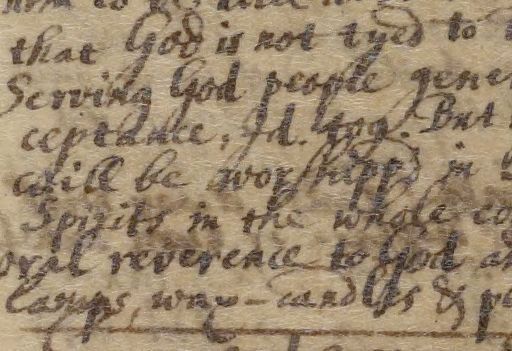 that God is not tyed to
Serving God people gene
ceptance, Id. 
But
will be worshipp'd in
Spirits in the whole co
oral reverence to God a
Lamps, wax-candles & pe